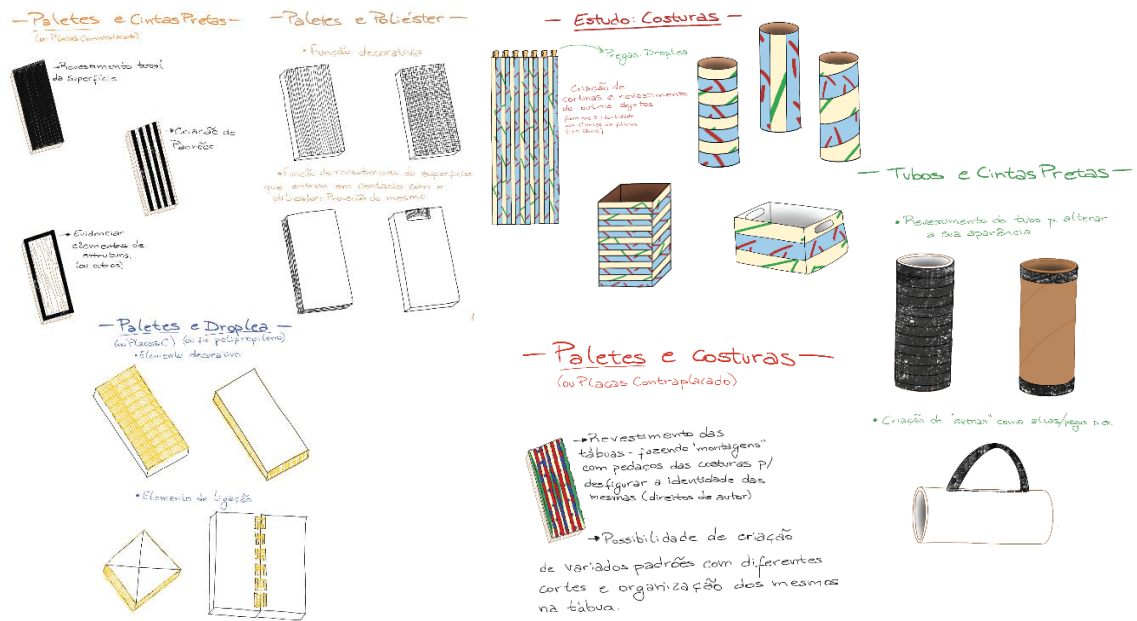 — Paletes e Cintas Pretas —
(ou Placas Contraplacado)
→Revestimento total
da superfície
→Criação de
Padrões
→Evidenciar
elementos de
estrutura,
(ou outros)
— Paletes e Poliéster —
• Função decorativa
• Função de revestimento de superfícies
que entram em contacto com o
utilizador: Proteção do mesmo
— Paletes e Droplea —
(ou Placas C) (ou fio polipropileno)
• Elemento decorativo
• Elemento de ligação
— Estudo: Costuras —
Pegas: Droplea
Criação de
cortinas e revestimento
de outros objetos
— Paletes e costuras —
(ou Placas Contraplacado)
→Revestimento das
tábuas - fazendo "montagens"
com pedaços das costuras p/
desfigurar a identidade das
mesmas (direitos de autor)
→Possibilidade de criação
de variados padrões com diferentes
cortes e organização dos mesmos
na tábua.
— Tubos e Cintas Pretas —
• Revestimento do tubo p. alterar
a sua aparência
• Criação de "extras" como alças/pegas p.ex.